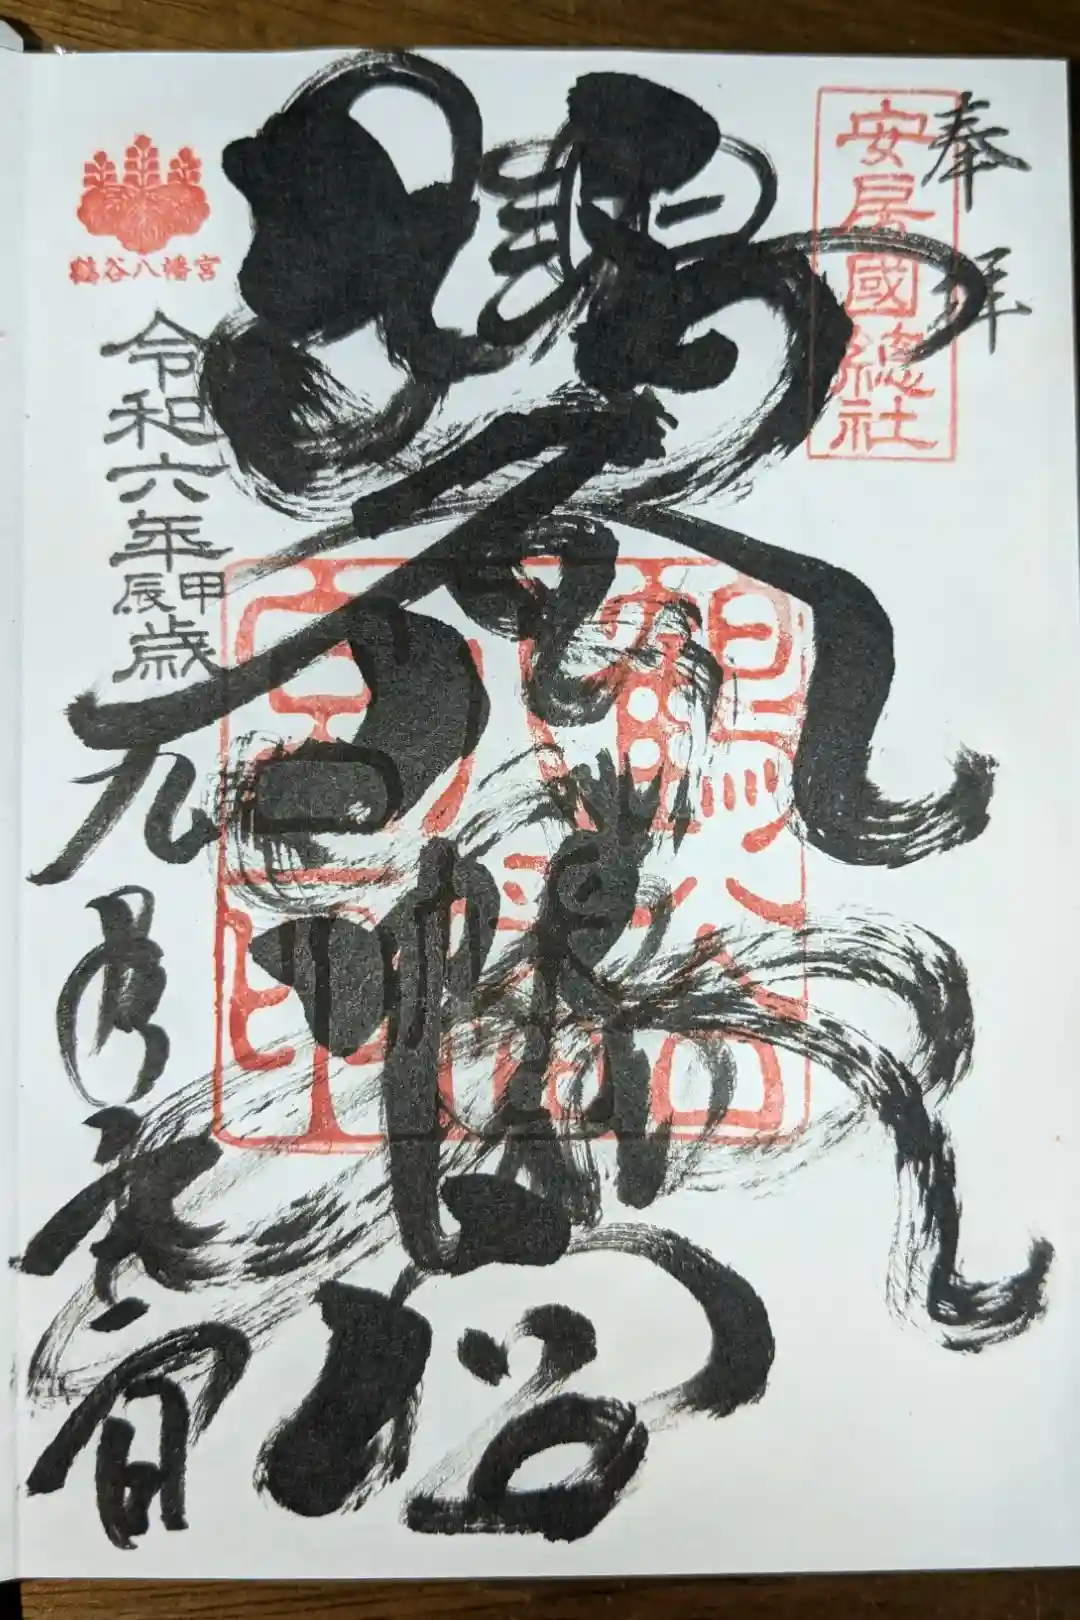 奉拝
安房國總社
鶴谷八幡宮
鶴谷八幡宮
令和六年甲辰歳
九月